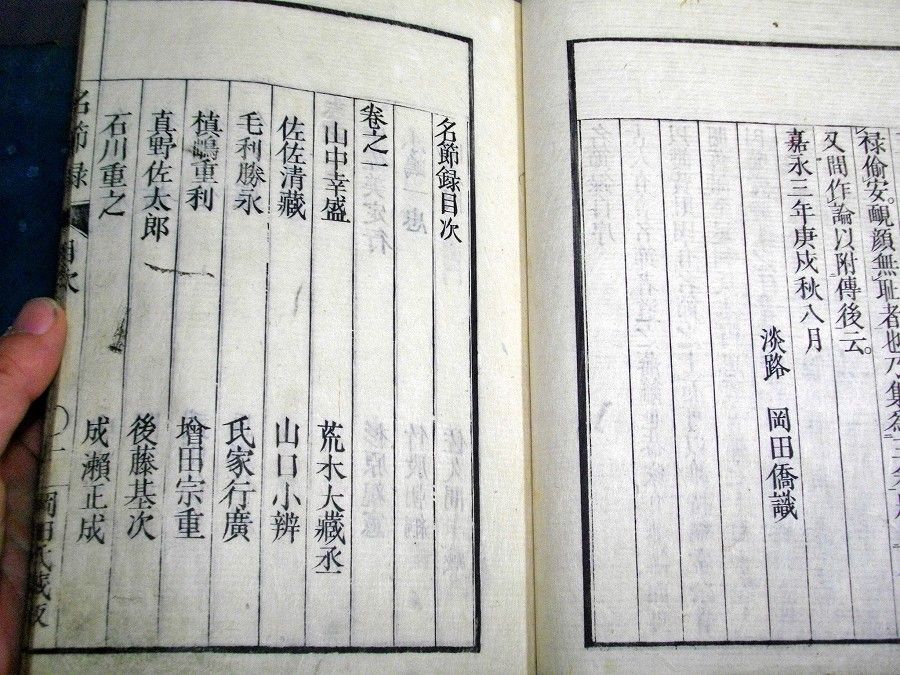 祿偷安。靦顔無耻者也乃集爲
又間作論以附傳後云。
嘉永三年庚戌秋八月
淡路 岡田僑識
名節録目次
卷之一
山中幸盛 荒木大藏丞
佐佐清藏 山口小辨
毛利勝永 氏家行廣
槙嶋重利 增田宗重
真野佐太郎 後藤基次
石川重之 成瀨正成
名節録 目次 〇一 岡田氏藏版